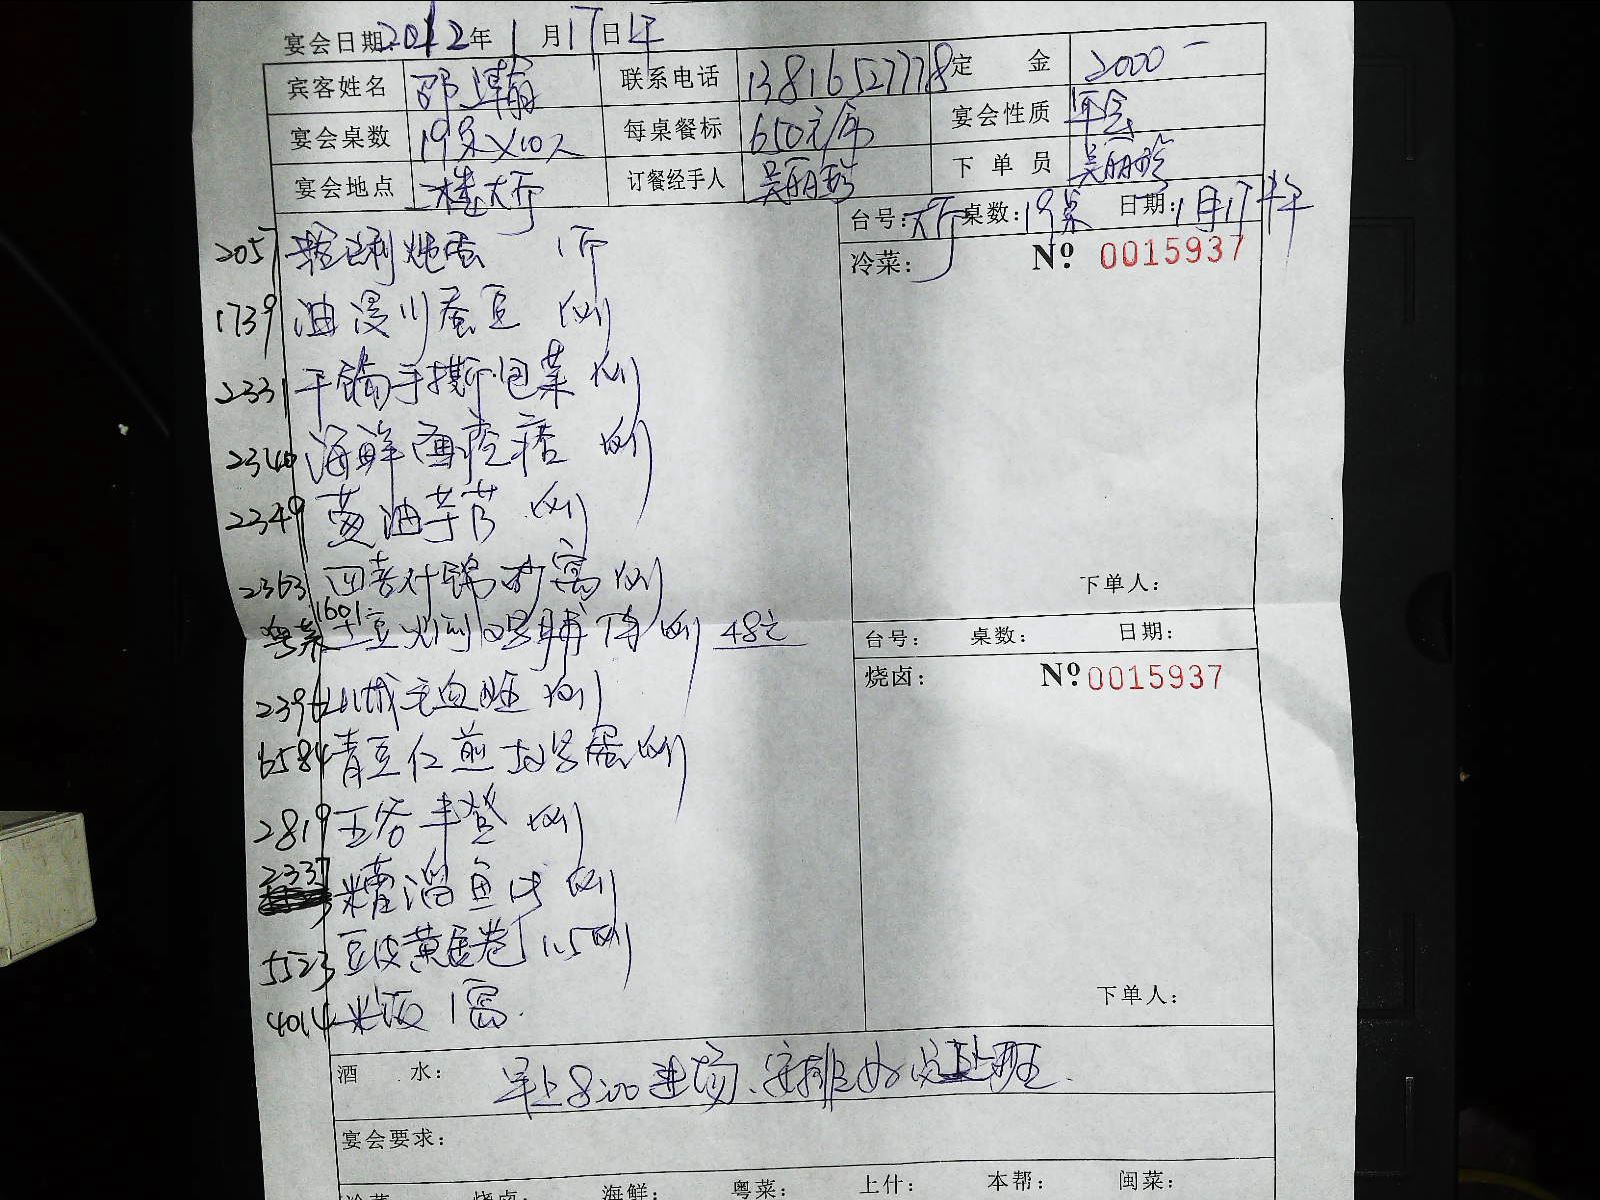 宴会日期2012年1月17日午
宾客姓名 邵 联系电话 13816527778 定 金 2000一
宴会桌数 19桌×10人 每桌餐标 650元/席 宴会性质 年会
宴会地点 二楼大厅 订餐经手人 吴丽珍 下单员 吴丽珍
台号:大厅 桌数:19桌 日期:1月17午
冷菜: Nº 0015937
2057 1斤
1739 油浸川蚕豆 例
2331 干锅手撕包菜 例
2340 海鲜面疙瘩 例
2349 葱油芋艿 例
2363 四喜什锦砂窝 例
下单人:
粤菜 1601 土豆 例 48元
台号: 桌数: 日期:
烧卤: Nº 0015937
2396 山城毛血旺 例
6584 青豆仁煎土鸡蛋 例
2819 五谷丰登 例
2337 糟溜鱼片 例
5523 豆皮黄金卷 1.5例
下单人:
4014 米饭 1窝.
酒 水: 早上8:00进场、安排好 上班.
宴会要求:
冷菜: 烧卤: 海鲜: 粤菜: 上什: 本帮: 闽菜: